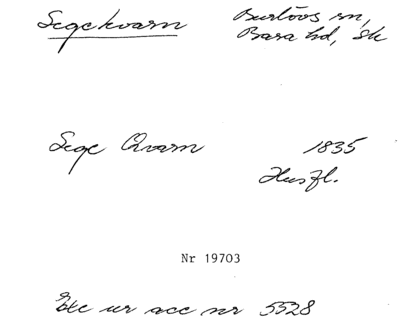 Segekvarn
Burlövs sn,
Bara hd, Sk
Sege Qvarn
1835
Husfl.
Nr 19703
Exc ur acc nr 5528